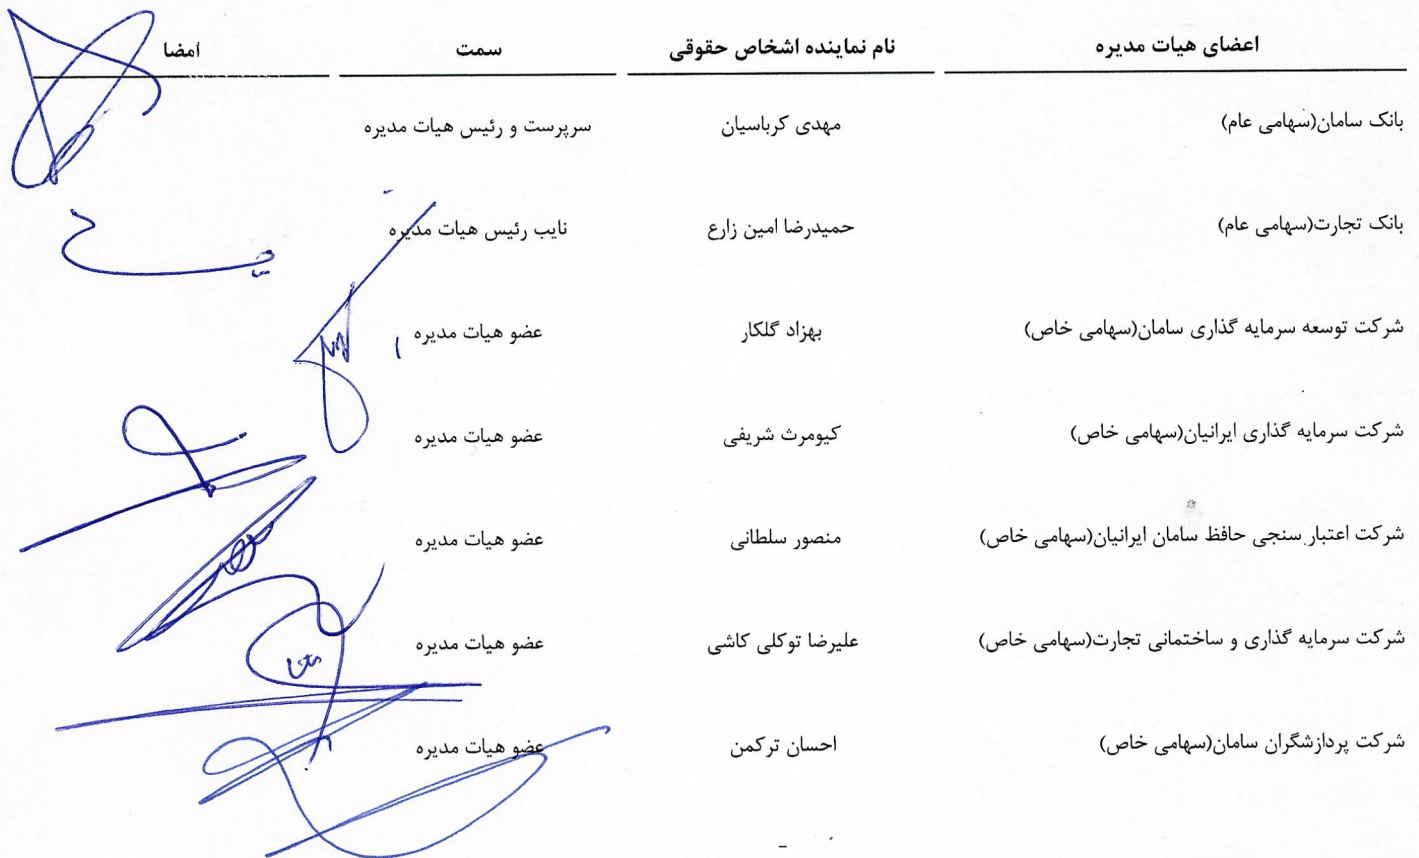 اعضای هیات مدیره نام نماینده اشخاص حقوقی سمت امضا
بانک سامان(سهامی عام) مهدی کرباسیان سرپرست و رئیس هیات مدیره
بانک تجارت(سهامی عام) حمیدرضا امین زارع نایب رئیس هیات مدیره
شرکت توسعه سرمایه گذاری سامان(سهامی خاص) بهزاد گلکار عضو هیات مدیره
شرکت سرمایه گذاری ایرانیان(سهامی خاص) کیومرث شریفی عضو هیات مدیره
شرکت اعتبار سنجی حافظ سامان ایرانیان(سهامی خاص) منصور سلطانی عضو هیات مدیره
شرکت سرمایه گذاری و ساختمانی تجارت(سهامی خاص) علیرضا توکلی کاشی عضو هیات مدیره
شرکت پردازشگران سامان(سهامی خاص) احسان ترکمن عضو هیات مدیره